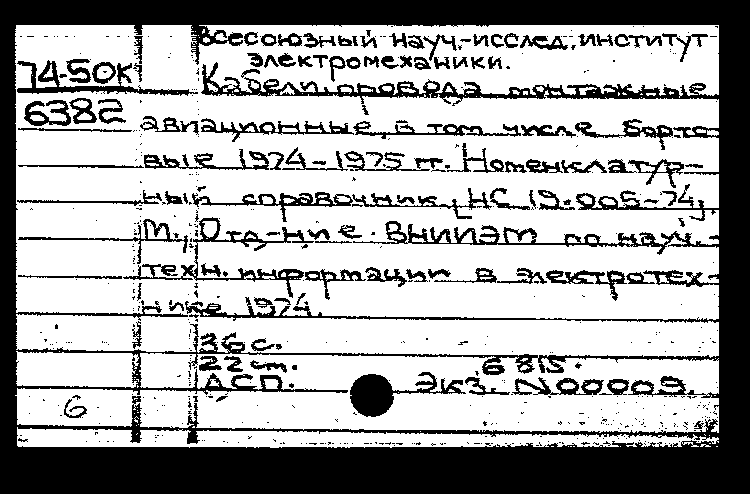 Всесоюзный науч.-исслед. институт
электромеханики.
74-50К
Кабели, провода монтажные
6382
авиационные, в том числе борто-
вые 1974-1975 гг. Номенклатур-
ный справочник, [НС 19.005-74].
М., Отд-ние ВНИИЭМ по науч.-
техн. информации в электротех-
нике, 1974.
36 с.
22 см. 6 815.
ДСП. Экз. N00009.
6